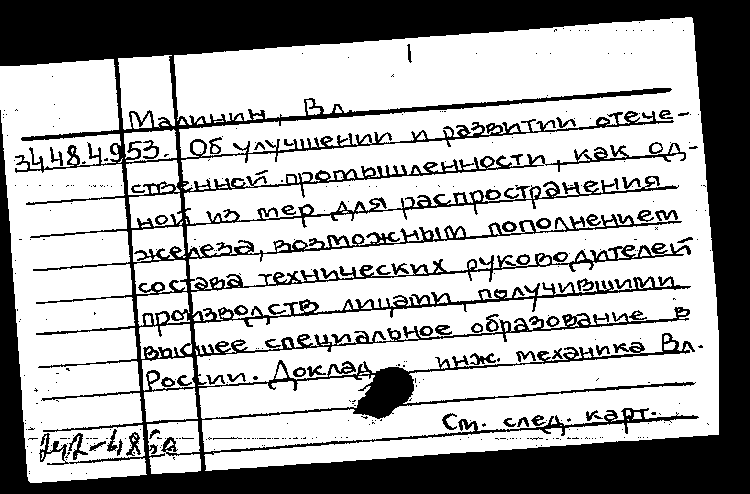 Малинин, Вл.
34.48.4.953. Об улучшении и развитии отече-
ственной промышленности, как од-
ной из мер для распространения
железа, возможным пополнением
состава технических руководителей
производств лицами, получившими
высшее специальное образование в
России. Доклад инж. механика Вл.
См. след. карт.